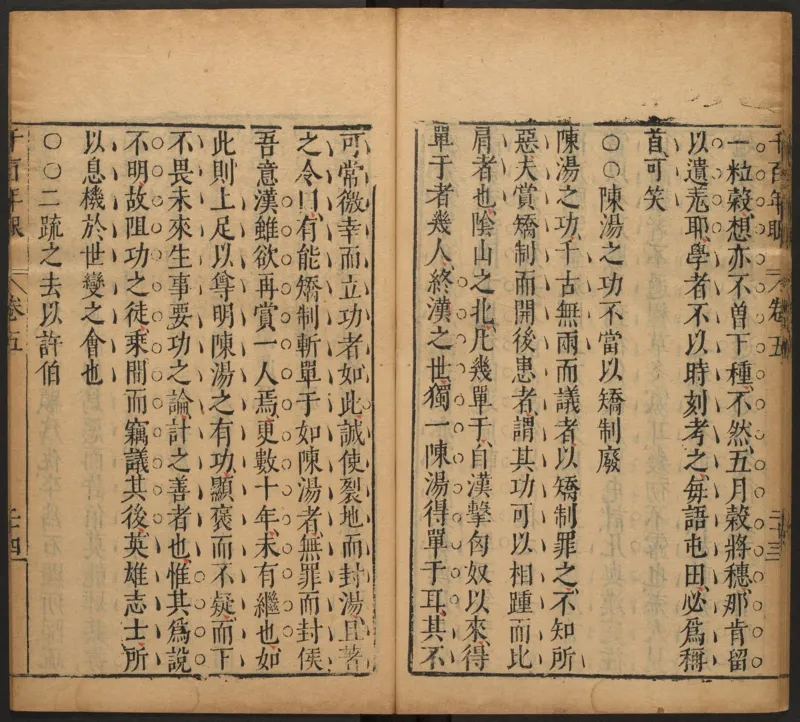 千百年眼
卷五
二十三
一粒穀想亦不曾下種不然五月穀將穗那肯留
以遺羌耶學者不以時刻考之每語屯田必爲稱
首可笑
○○陳湯之功不當以矯制廢
陳湯之功千古無兩而議者以矯制罪之不知所
惡夫賞矯制而開後患者謂其功可以相踵而比
肩者也陰山之北凡幾單于自漢擊匈奴以來得
單于者幾人終漢之世獨一陳湯得單于耳其不
可常徼幸而立功者如此誠使裂地而封湯且著
之令曰有能矯制斬單于如陳湯者無罪而封侯
吾意漢雖欲再賞一人焉更數十年未有繼也如
此則上足以尊明陳湯之有功顯褒而不疑而下
不畏未來生事要功之論計之善者也惟其爲說
不明故阻功之徒乘間而竊議其後英雄志士所
以息機於世變之會也
○○二疏之去以許伯
千百年眼
卷五
二十四